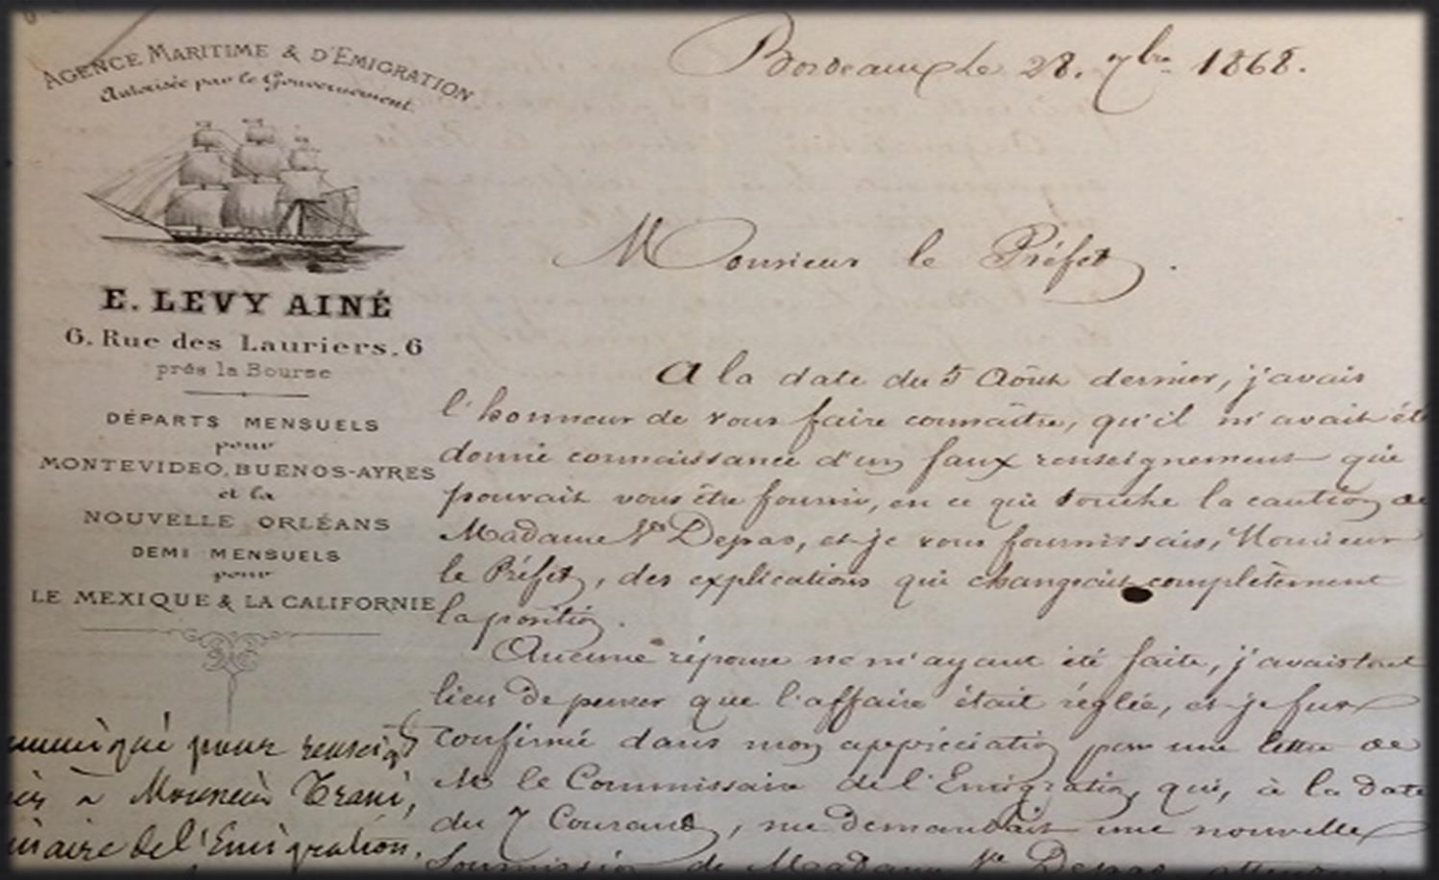 AGENCE MARITIME & D'EMIGRATION
Autorisée par le Gouvernement.
E. LEVY AINÉ
6. Rue des Lauriers. 6
près la Bourse
DÉPARTS MENSUELS
pour
MONTEVIDEO, BUENOS-AYRES
et la
NOUVELLE ORLÉANS
DEMI MENSUELS
pour
LE MEXIQUE & LA CALIFORNIE
Bordeaux le 28. 7bre 1868.
Monsieur le Préfet
A la date du 5 Août dernier, j'avais
l'honneur de vous faire connaître, qu'il m'avait été
donné connaissance d'un faux renseignement que
pouvait vous être fourni, en ce qui touche la caution de
Madame Ve Depas, et je vous fournissais, Monsieur
le Préfet, des explications qui changeait complètement
la position.
Aucune réponse ne m'ayant été faite, j'avais tout
lieu de penser que l'affaire était réglée, et je fus
confirmé dans mon appréciation par une lettre de
Mr le Commissaire de l'Emigration, qui, à la date
du 7 Courant, me demandait une nouvelle
Soumission de Madame Ve Depas
pour renseigts
à Monsieur
de l'Emigration.